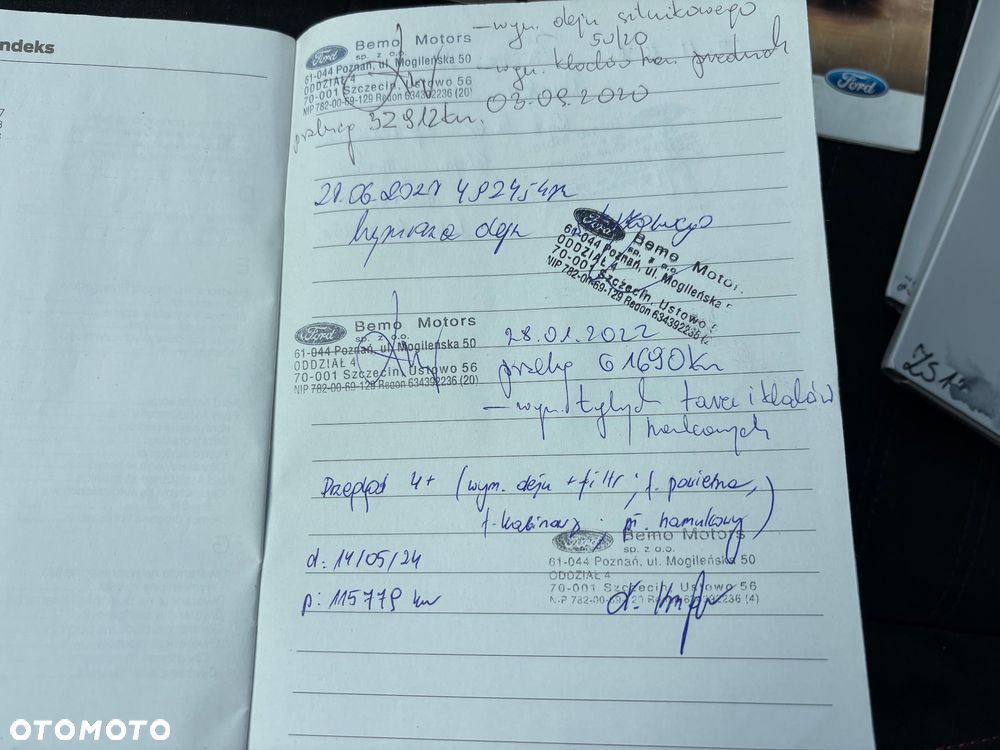 ndeks
Ford
Bemo Motors
sp. z o.o.
61-044 Poznań, ul. Mogileńska 50
ODDZIAŁ 4
70-001 Szczecin, Ustowo 56
NIP 782-00-69-129 Regon 634392236 (20)
- wym. oleju silnikowego
5W20
- wym. klocków ham. przednich
przebieg 32912km. 03.09.2020
Ford
28.06.2021 49245km
Wymiana oleju silnikowego
Ford
Bemo Motor
sp. z o.o.
61-044 Poznań, ul. Mogileńska
ODDZIAŁ 4
70-001 Szczecin, Ustowo
NIP 782-00-69-129 Regon 634392236 (2
Ford
Bemo Motors
sp. z o.o.
61-044 Poznań, ul. Mogileńska 50
ODDZIAŁ 4
70-001 Szczecin, Ustowo 56
NIP 782-00-69-129 Regon 634392236 (20)
28.01.2022
przebieg 61690km
- wym. tylnych tarcz i klocków
hamulcowych
Przegląd 4+ (wym. oleju + filtr; f. powietrza,
f. kabinowy; pł. hamulcowy)
d: 14/05/24
p: 115779 km
Ford
Bemo Motors
sp. z o.o.
61-044 Poznań, ul. Mogileńska 50
ODDZIAŁ 4
70-001 Szczecin, Ustowo 56
(4)
OTOMOTO